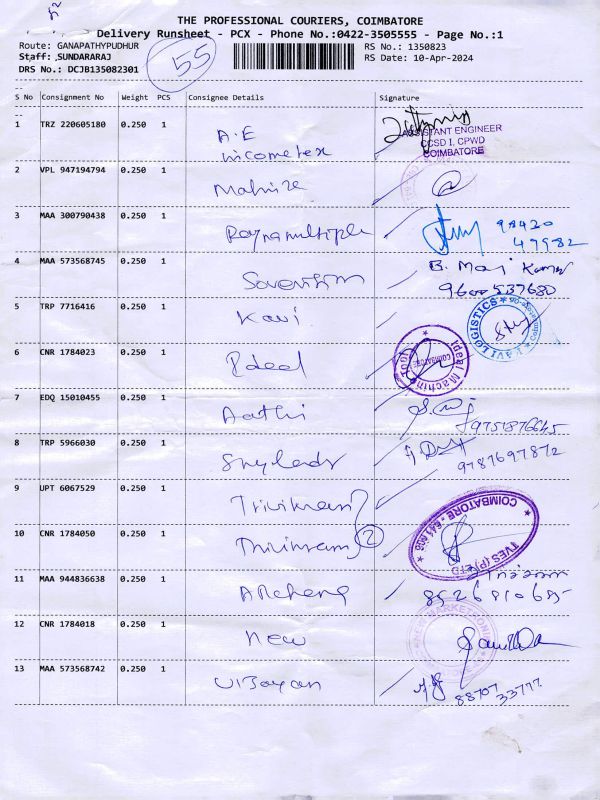 THE PROFESSIONAL COURIERS, COIMBATORE
Delivery Runsheet - PCX - Phone No.:0422-3505555 - Page No.:1
Route: GANAPATHYPUDHUR
RS No.: 1350823
Staff: ,SUNDARARAJ
RS Date: 10-Apr-2024
DRS No.: DCJB135082301
55
S No Consignment No Weight PCS Consignee Details Signature
1 TRZ 220605180 0.250 1 A.E Incometax
ASSISTANT ENGINEER
CCSD I, CPWD
COIMBATORE
2 VPL 947194794 0.250 1
3 MAA 300790438 0.250 1 98420
47982
4 MAA 573568745 0.250 1 B. Maj Kumar
9600537680
5 TRP 7716416 0.250 1 Kavi
KAVI LOGISTICS
6 CNR 1784023 0.250 1 Ideal
Ideal Machine Tools
COIMBATORE
7 EDQ 15010455 0.250 1 Aathi
9751876645
8 TRP 5966030 0.250 1
9787697872
9 UPT 6067529 0.250 1
10 CNR 1784050 0.250 1 2
TVES (P) LTD
COIMBATORE - 641 006
11 MAA 944836638 0.250 1
8526810685
12 CNR 1784018 0.250 1 New
13 MAA 573568742 0.250 1 Vijayan
88707
33777